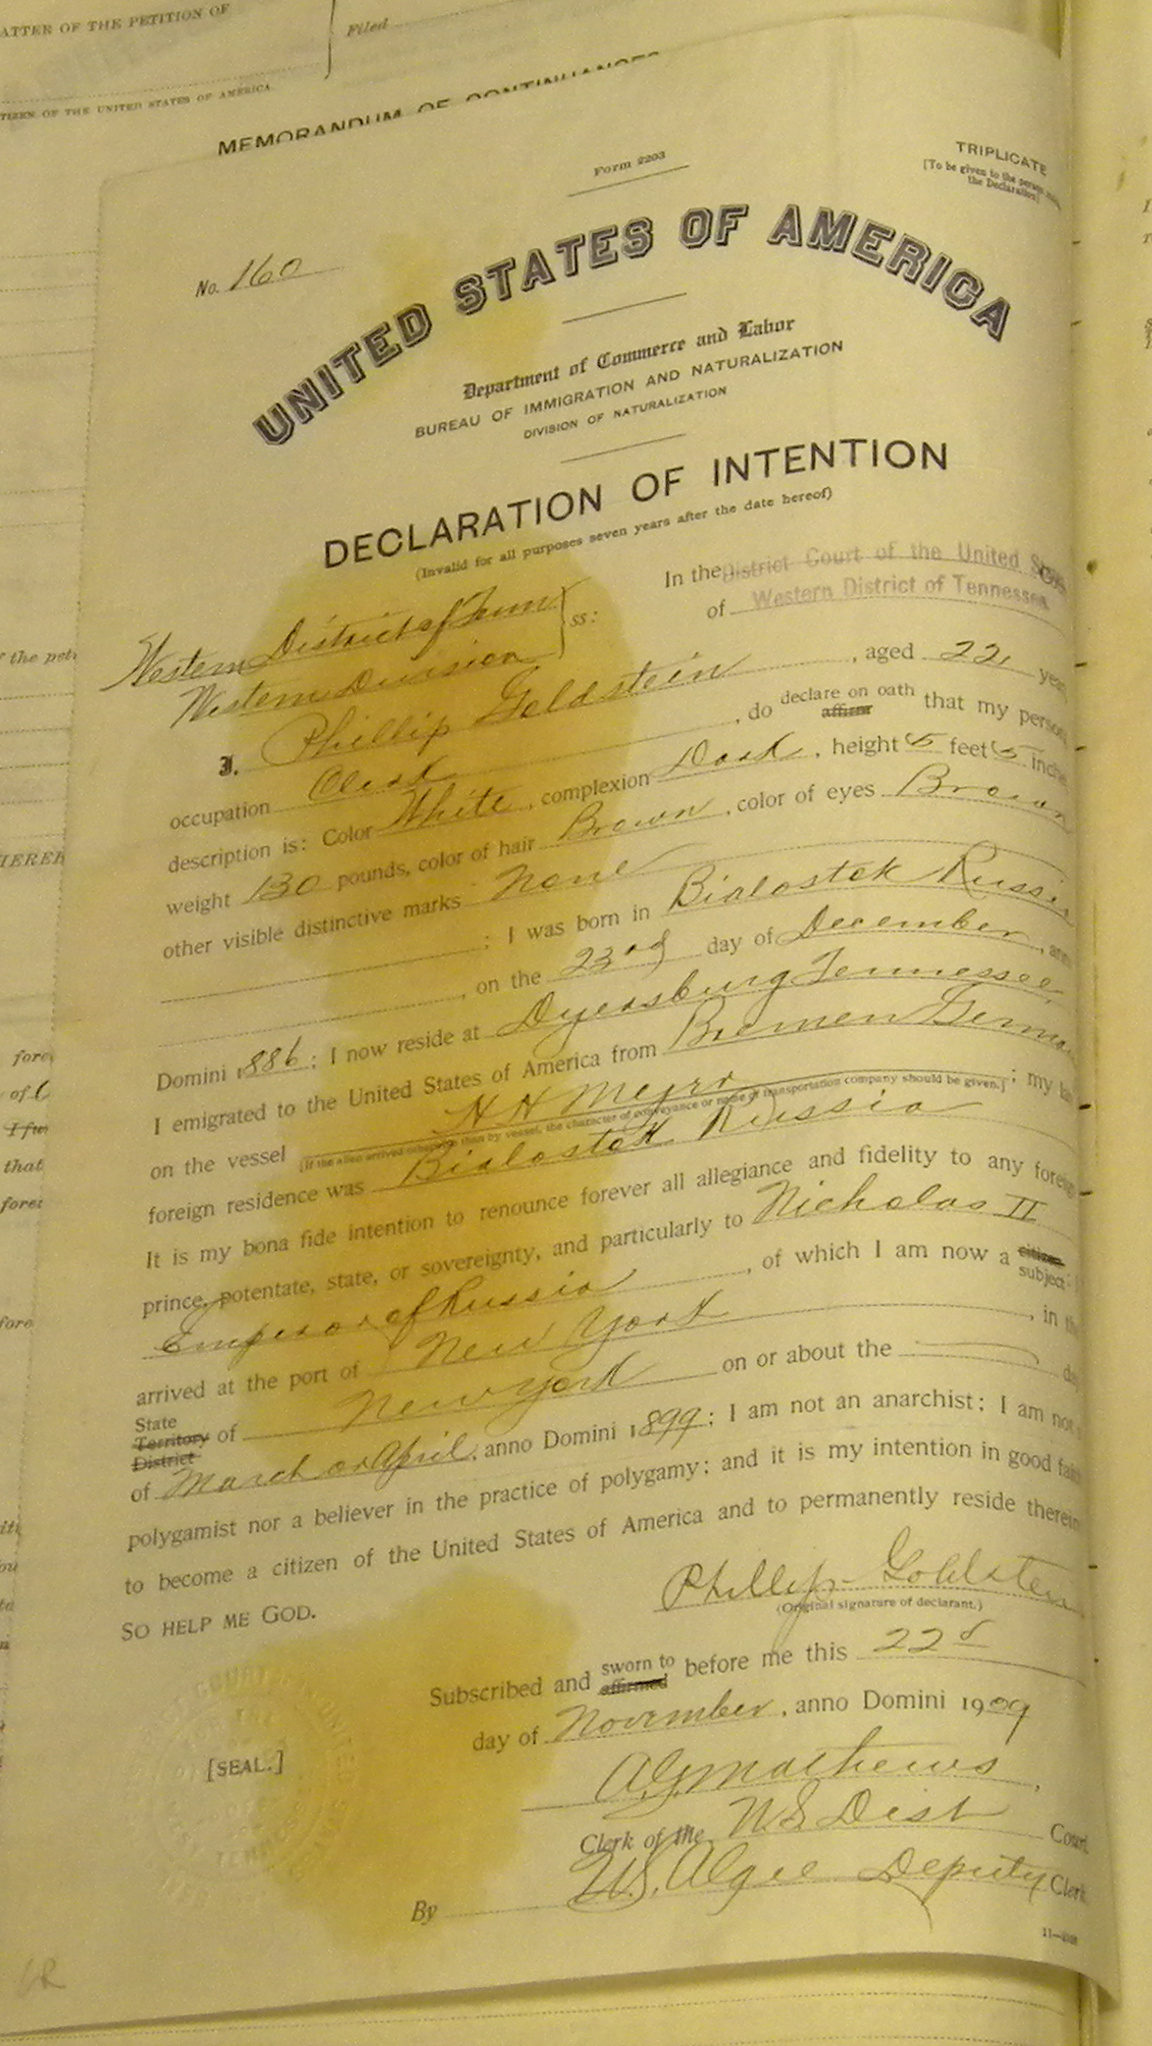 ATTER OF THE PETITION OF
Filed
TIZEN OF THE UNITED STATES OF AMERICA.
MEMORANDUM OF CONTINUANCES
Form 2203
TRIPLICATE
[To be given to the person
the Declaration]
No. 160
UNITED STATES OF AMERICA
Department of Commerce and Labor
BUREAU OF IMMIGRATION AND NATURALIZATION
DIVISION OF NATURALIZATION
DECLARATION OF INTENTION
(Invalid for all purposes seven years after the date hereof)
In the District Court of the United
of Western District of Tennessee
Western District of Tenn
Western Division
ss:
I, Phillip Goldstein, aged 22, years
occupation Clerk, do declare on oath affirm that my person
description is: Color White, complexion Dark, height 5 feet 5 inche
weight 130 pounds, color of hair Brown, color of eyes Brown
other visible distinctive marks None
; I was born in Bialostok Russia
, on the 23rd day of December, an
Domini 1886; I now reside at Dyersburg Tennessee
I emigrated to the United States of America from Bremen Germa
on the vessel H H Mejro; my la
(If the alien arrived otherwise than by vessel, the character of conveyance or name of transportation company should be given.)
foreign residence was Bialostok Russia
It is my bona fide intention to renounce forever all allegiance and fidelity to any foreig
prince, potentate, state, or sovereignty, and particularly to Nicholas II
Emperor of Russia, of which I am now a citizen subject;
arrived at the port of New York, in th
State Territory District of New York on or about the da
of March or April, anno Domini 1899; I am not an anarchist; I am not
polygamist nor a believer in the practice of polygamy; and it is my intention in good fai
to become a citizen of the United States of America and to permanently reside therein
SO HELP ME GOD.
Phillip Goldstein
(Original signature of declarant.)
Subscribed and sworn to affirmed before me this 22d
day of November, anno Domini 1909
[SEAL.]
A.G. Mathews,
Clerk of the U.S. Dist Court.
By W.S. Algee Deputy Clerk